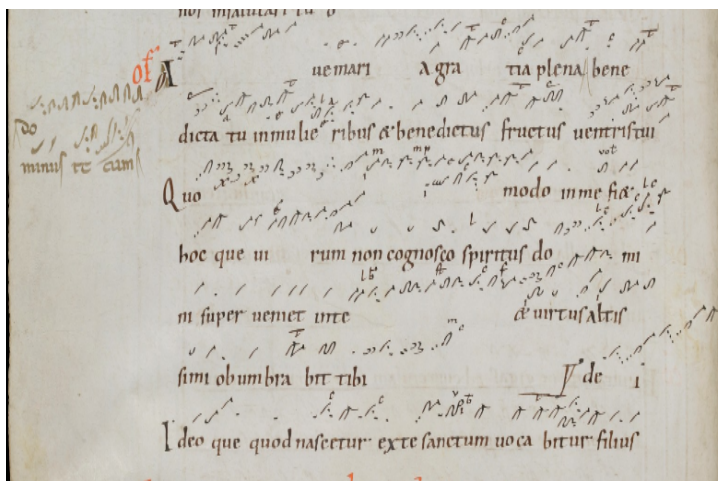 of
A uemari a gra tia plena bene
do
minus tecum
dicta tu inmulie ribus & benedictus fructus uentristui
Quo modo inme fi&
hoc que ui rum non cognosco spiritus do mi
ni super ueniet inte & uirtus altis
simi obumbra bit tibi V de i
Ideo que quod nascetur exte sanctum uoca bitur filius